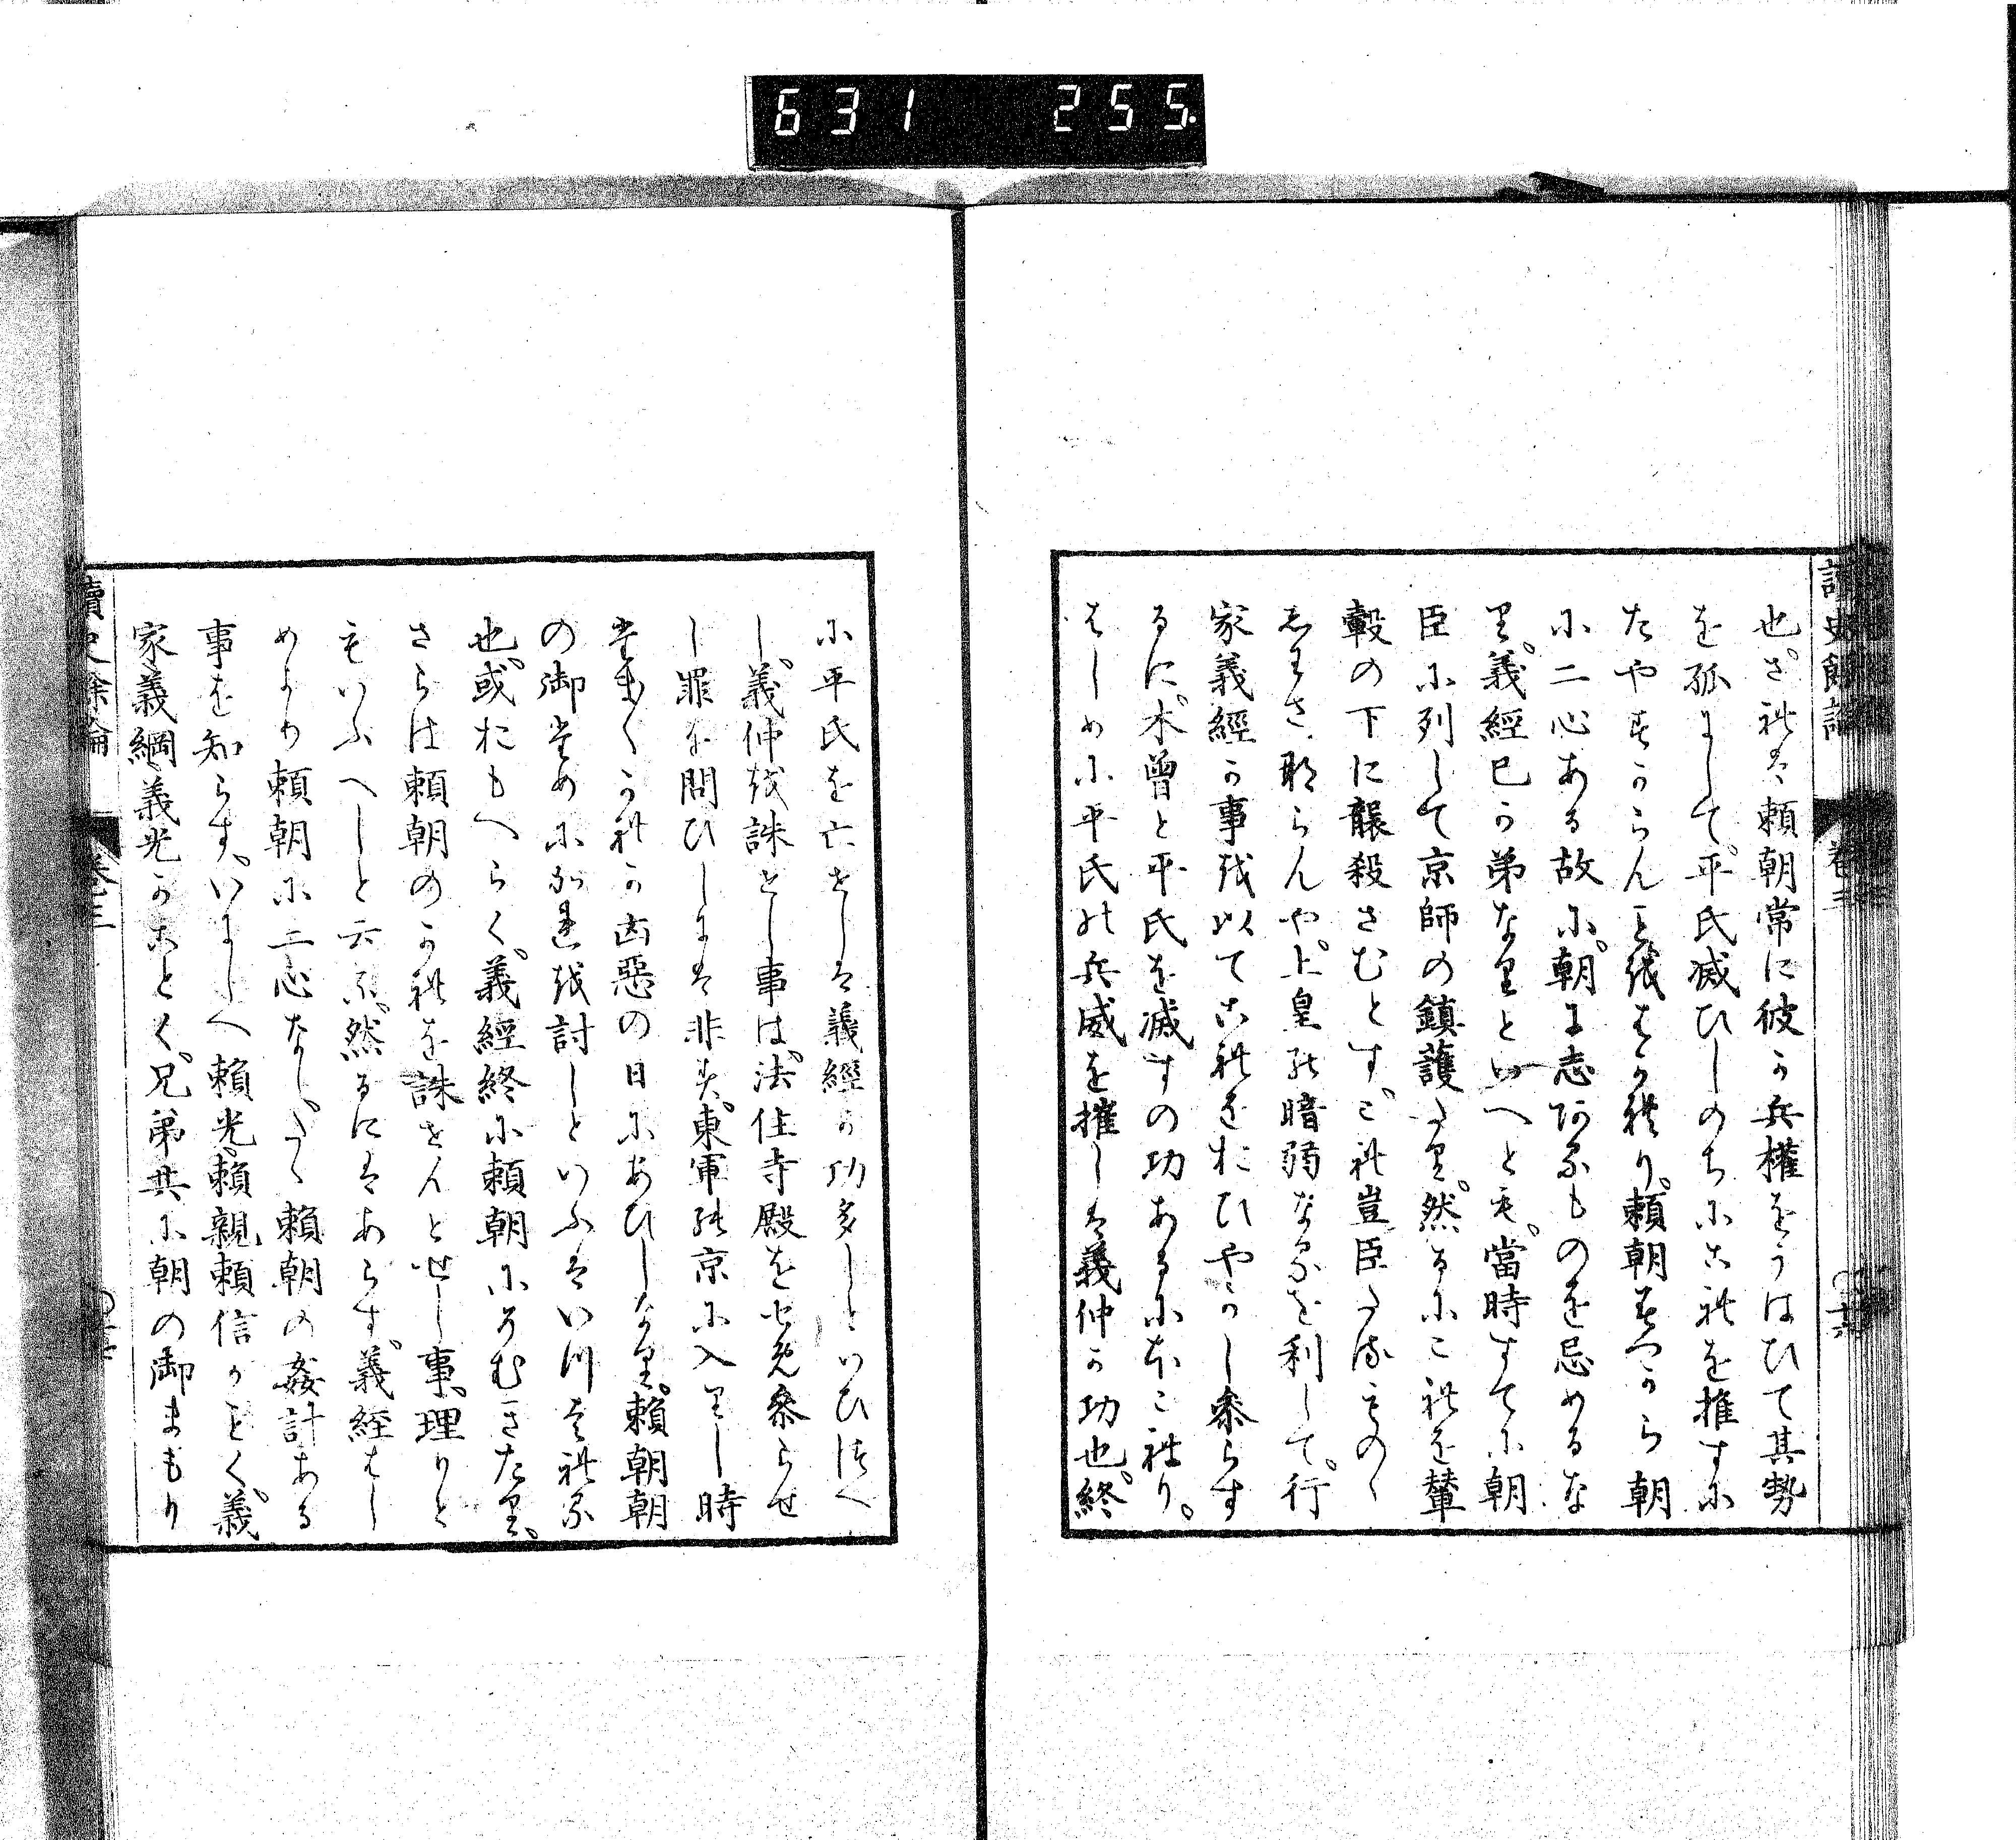 631 255.
讀史餘論 巻三
也。されは頼朝常に彼か兵權をうはひて其勢
を孤にして。平氏滅ひしのちにこれを推すに
たやすからん〿をはかれり。頼朝もつから朝
に二心ある故に。朝に志あるものを忌めるな
り。義經已か弟なりといへとも。當時すてに朝
臣に列して京師の鎮護たり。然るにこれを輦
轂の下に襲殺さむとす。これ豈臣たるものゝ
しわさならんや。上皇の暗弱なるを利して。行
家義經か事を以てこれをおひやかし参らす
るに。木曾と平氏を滅すの功あるにおこれり。
はしめに平氏の兵威を摧しは義仲か功也。終
に平氏を亡せしは義經か功多しといひつへ
し。義仲を誅せし事は。法住寺殿をせめ参らせ
し罪を問ひしには非す。東軍の京に入りし時
たま〱かれか凶惡の日にあひしなり。頼朝朝
の御ために逆を討しといふはいつはれる
也。或おもへらく。義經終に頼朝にそむきたり。
さらは頼朝のかれを誅せんとせし事。理りと
もいふへしと云ふ。然るにはあらす。義經はし
めより頼朝に二心なし。たゝ頼朝の姦計ある
事を知らす。いにしへ頼光頼親頼信かことく。義
家義綱義光かことく。兄弟共に朝の御まもり
讀史餘論 巻三